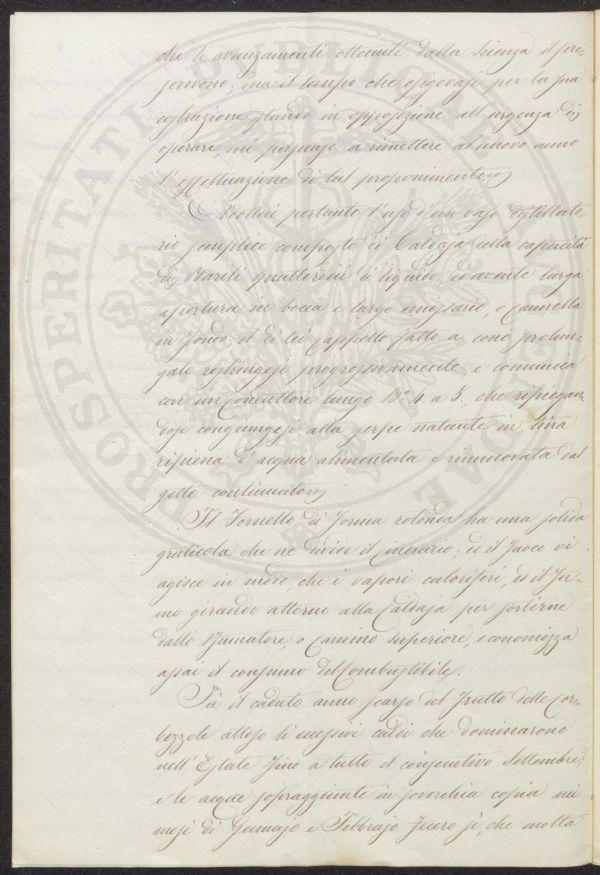 che li avanzamenti ottenuti dalla Scienza il pre-
scrivono; ma il tempo che esigevasi per la sua
costruzione stando in opposizione all'urgenza di
operare, mi persuase a rimettere al nuovo anno
l'effettuazione di tal proponimento
Adottai pertanto l'uso d'un vaso distillato-
rio semplice composto di Caldaja della capacità
di Barili quattordici di liquido, ed avente larga
apertura in bocca e largo emissario, o Cannella
in fondo; il di lei Cappello fatto a cono prolun-
gato restringesi progressivamente, e comunica
con un Conduttore lungo B.a 4 a 5, che ripiegan-
dosi congiungesi alla serpe natante in tina
ripiena d'acqua alimentata e rinnuovata dal
getto continuato
Il Fornello di forma rotonda ha una solida
graticola che ne divide il Cinerario; ed il fuoco vi
agisce in modo, che i vapori caloriferi, ed il fu-
mo girando attorno alla Caldaja per sortirne
dallo Bucciatore, o Camino superiore, economizza
assai il consumo del Combustibile.
Fù il caduto anno scarso del Frutto delle Cor-
bezzole atteso li eccessivi caldi che dominarono
nell'Estate fino a tutto il consecutivo Settembre;
e le acque sopraggiunte in soverchia copia nei
mesi di Gennajo e Febbrajo fecero sì, che molta
PROSPERITATI PUBLICAE AUGENDAE